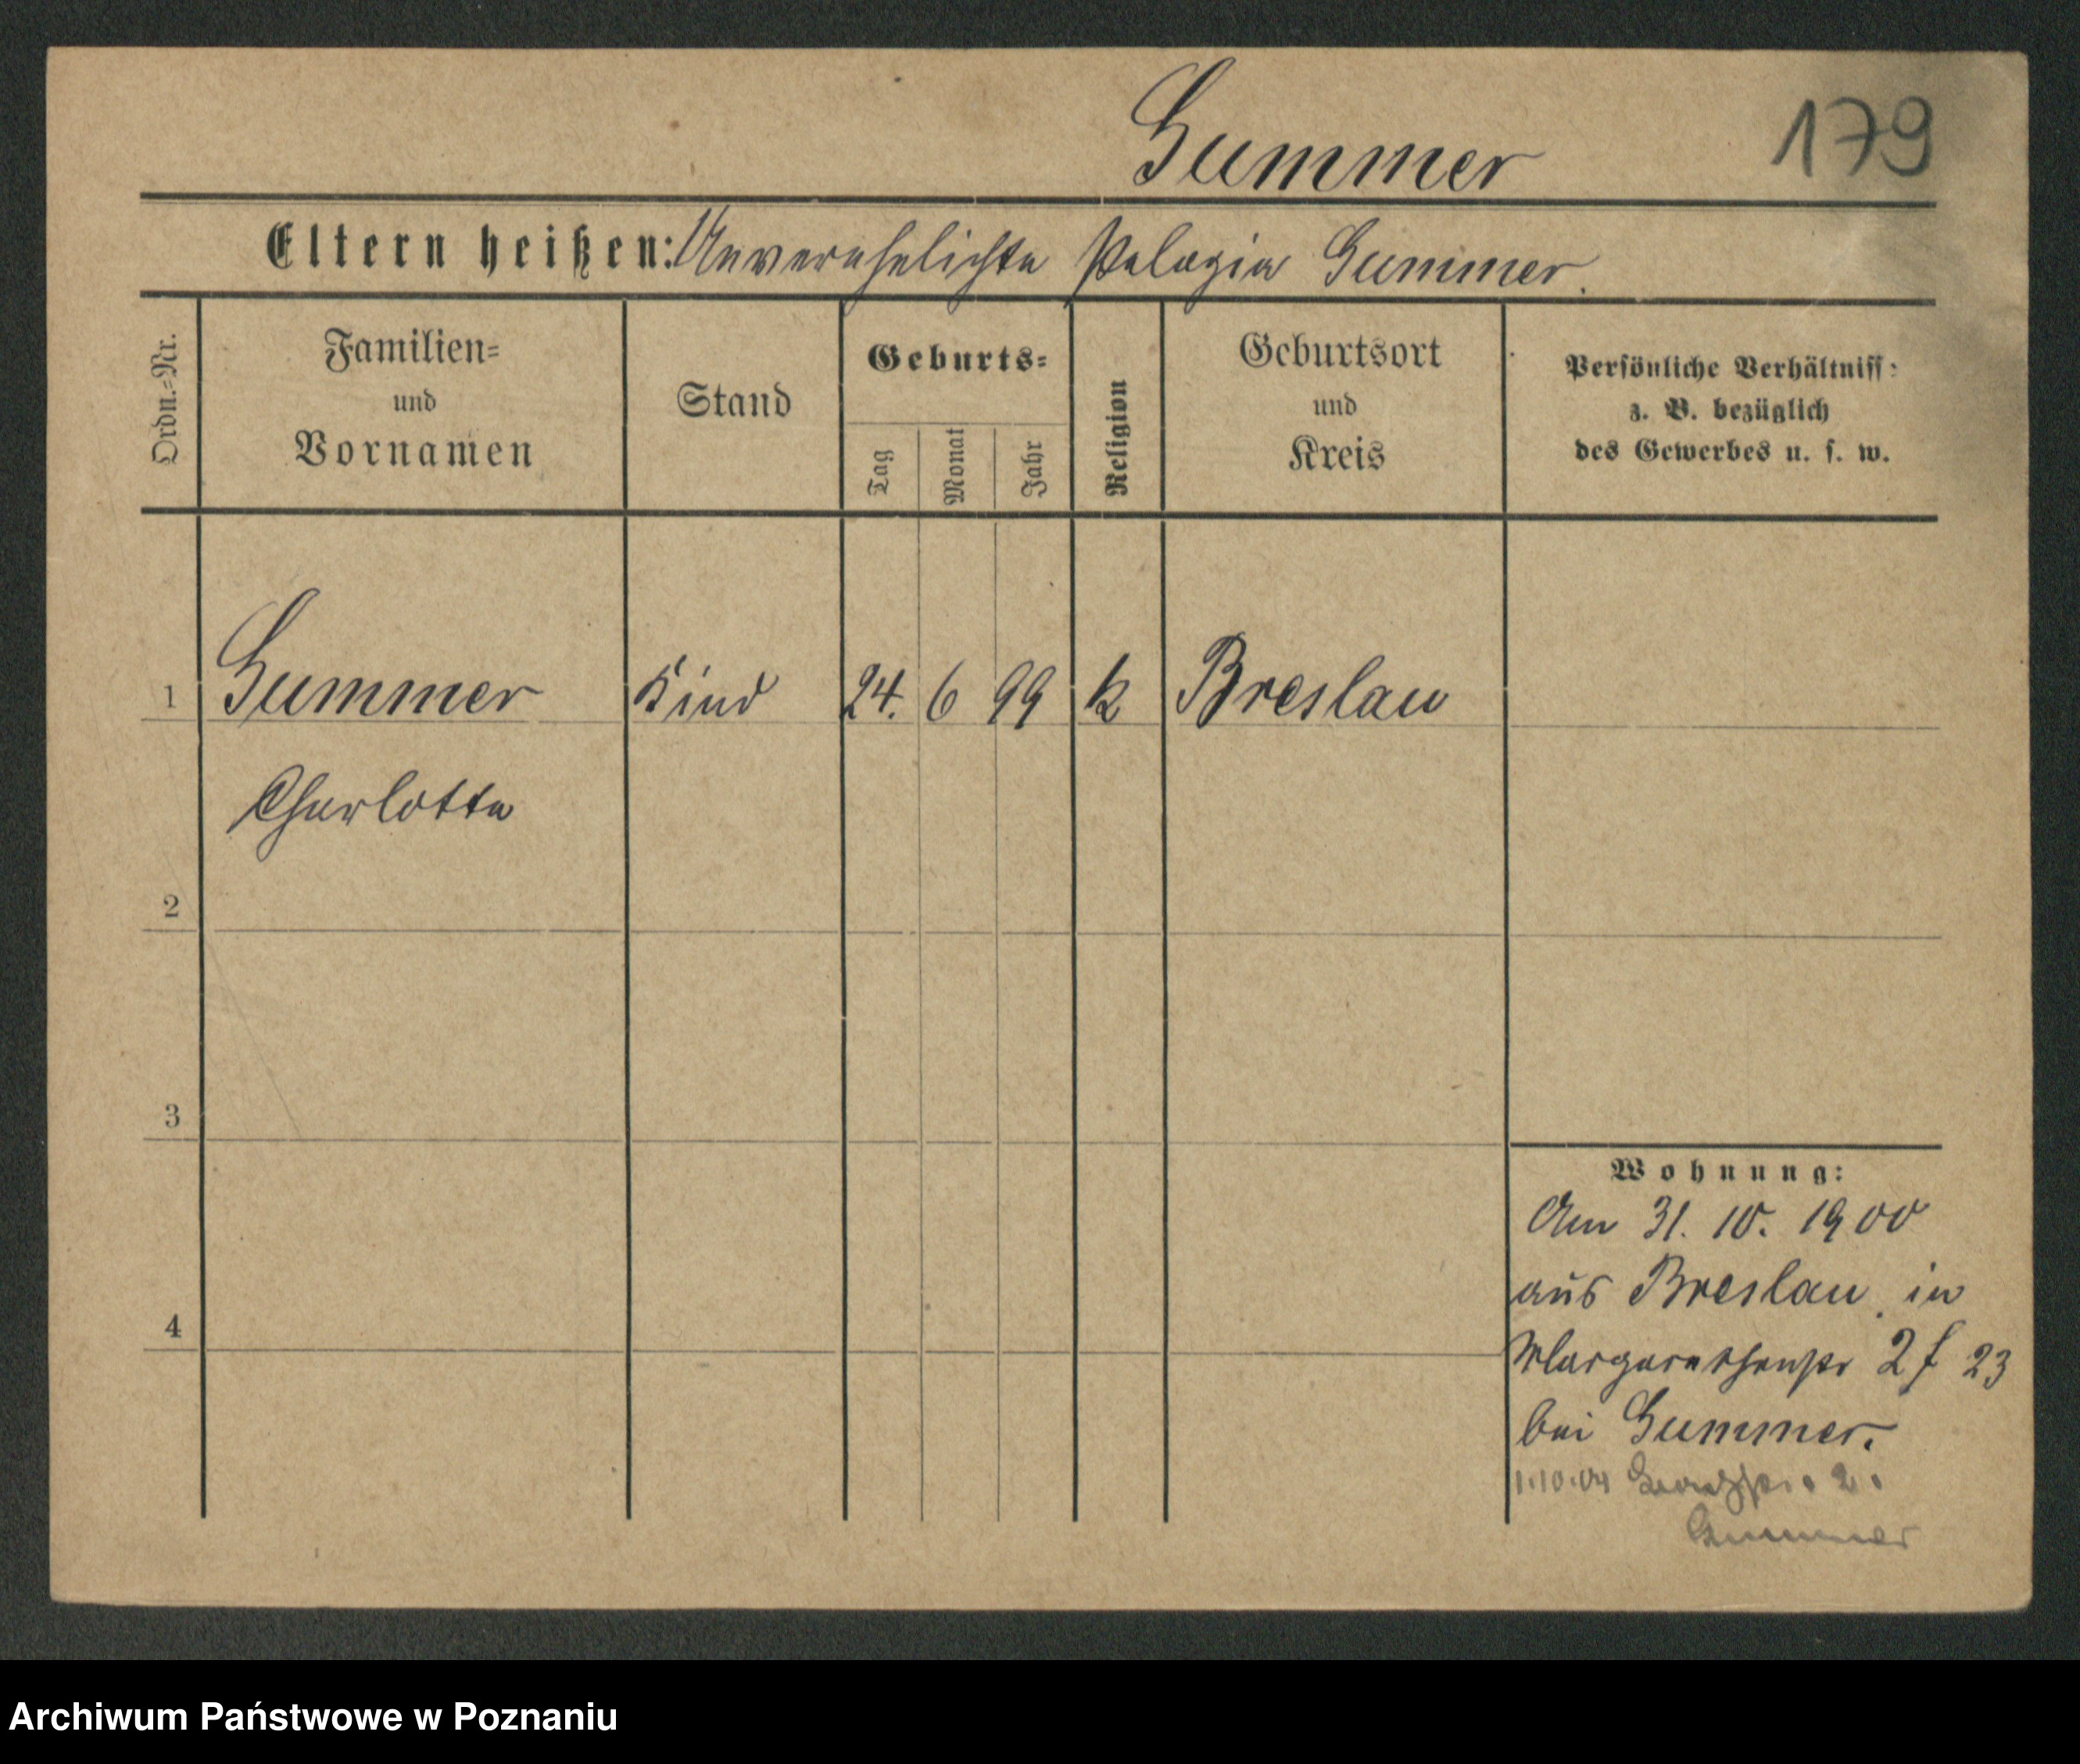 Summer
179
Eltern heißen: Unverehelichte Pelagia Summer.
Ordn.=Nr.
Familien=
und
Vornamen
Stand
Geburts=
Tag
Monat
Jahr
Religion
Geburtsort
und
Kreis
Persönliche Verhältniss:
z. B. bezüglich
des Gewerbes u. s. w.
1 Summer Kind 24. 6 99 k Breslau
Charlotte
2
3
4
Wohnung:
Am 31. 10. 1900
aus Breslau in
Margarethenstr 2 f 23
bei Summer.
1.10.04 2.
Summer
Archiwum Państwowe w Poznaniu